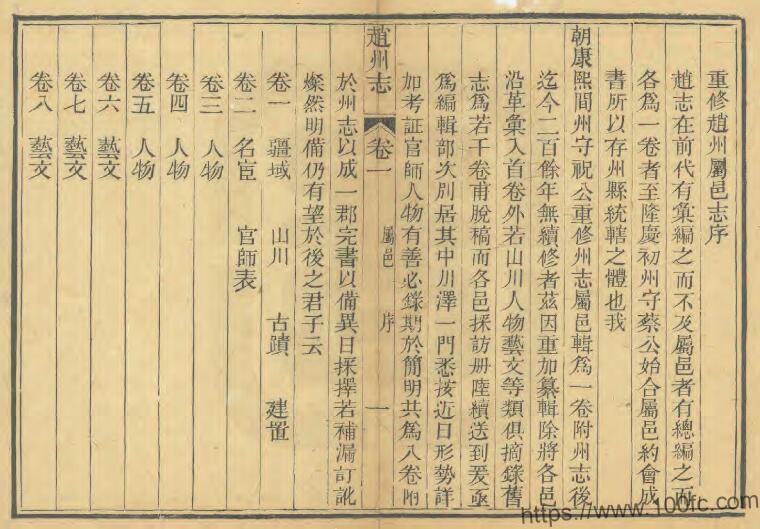 重修趙州屬邑志序
趙志在前代有彙編之而不及屬邑者有總編之而
各爲一卷者至隆慶初州守蔡公始合屬邑約會成
書所以存州縣統轄之體也我
朝康熙間州守祝公重修州志屬邑輯爲一卷附州志後
迄今二百餘年無續修者茲因重加纂輯除將各邑
沿革彙入首卷外若山川人物藝文等類俱摘錄舊
志爲若干卷甫脫稿而各邑採訪册陸續送到爰亟
爲編輯部次別居其中川澤一門悉按近日形勢詳
加考証官師人物有善必錄期於簡明共爲八卷附
趙州志 卷一 屬邑 序 一
於州志以成一郡完書以備異日採擇若補漏訂訛
燦然明備仍有望於後之君子云
卷一 疆域 山川 古蹟 建置
卷二 名宦 官師表
卷三 人物
卷四 人物
卷五 人物
卷六 藝文
卷七 藝文
卷八 藝文
https://www.100fc.com